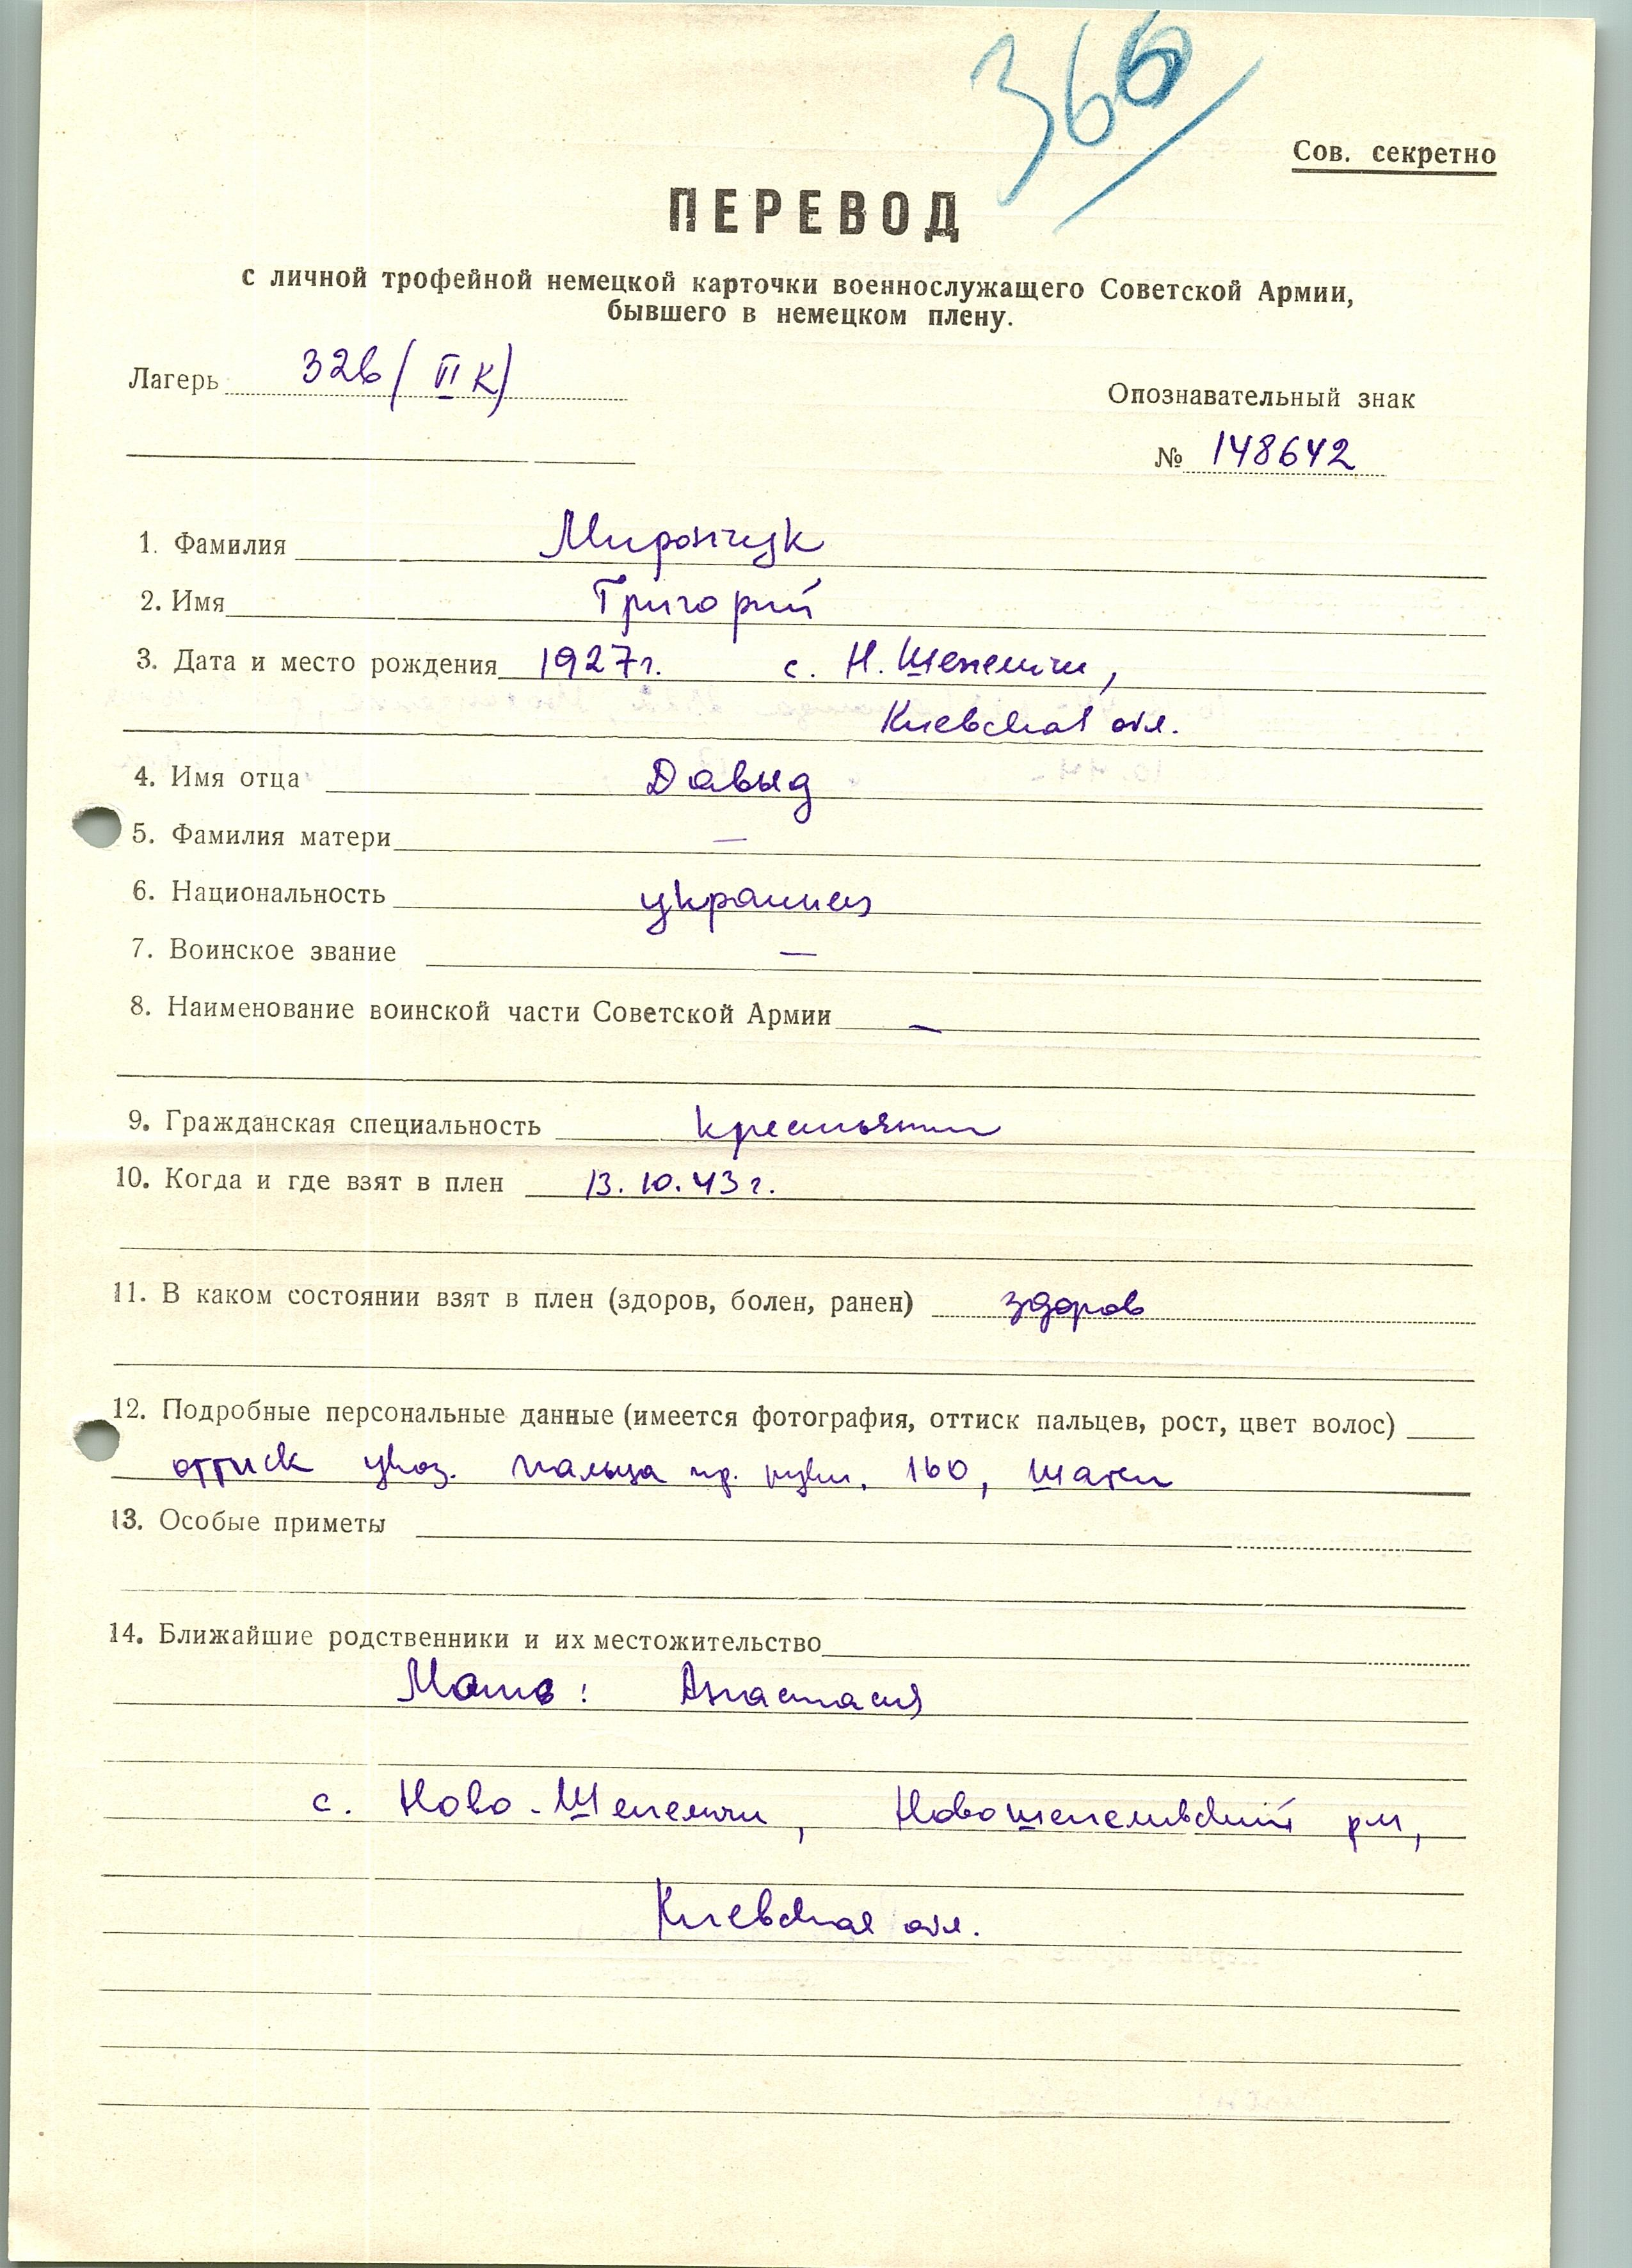 366
Сов. секретно
ПЕРЕВОД
с личной трофейной немецкой карточки военнослужащего Советской Армии,
бывшего в немецком плену.
Лагерь 326/ VI К)
Опознавательный знак
№ 148642
1. Фамилия Мирончук
2. Имя Григорий
3. Дата и место рождения 1927г. с. Н. Шепеличи,
Киевская обл.
4. Имя отца Давыд
5. Фамилия матери —
6. Национальность украинец
7. Воинское звание —
8. Наименование воинской части Советской Армии —
9. Гражданская специальность крестьянин
10. Когда и где взят в плен 13.10.43г.
11. В каком состоянии взят в плен (здоров, болен, ранен) здоров
12. Подробные персональные данные (имеется фотография, оттиск пальцев, рост, цвет волос)
оттиск указ. пальца пр. руки, 160, шатен
13. Особые приметы
14. Ближайшие родственники и их местожительство
Мать: Анастасия
с. Ново-Шепеличи, Новошепеличский р-н,
Киевская обл.